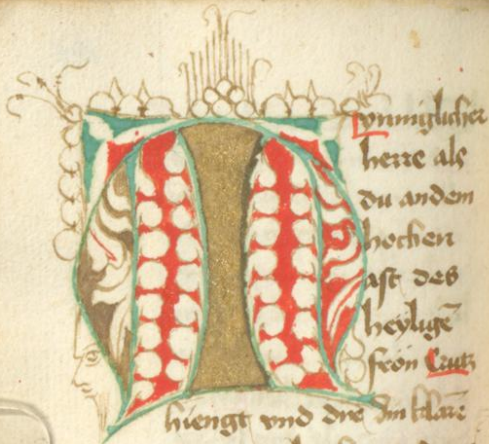 M
ynniglicher
herre als
du an dem
hochen
ast des
heylige̅
fron Crutz
hiengt vnd die din klare̅